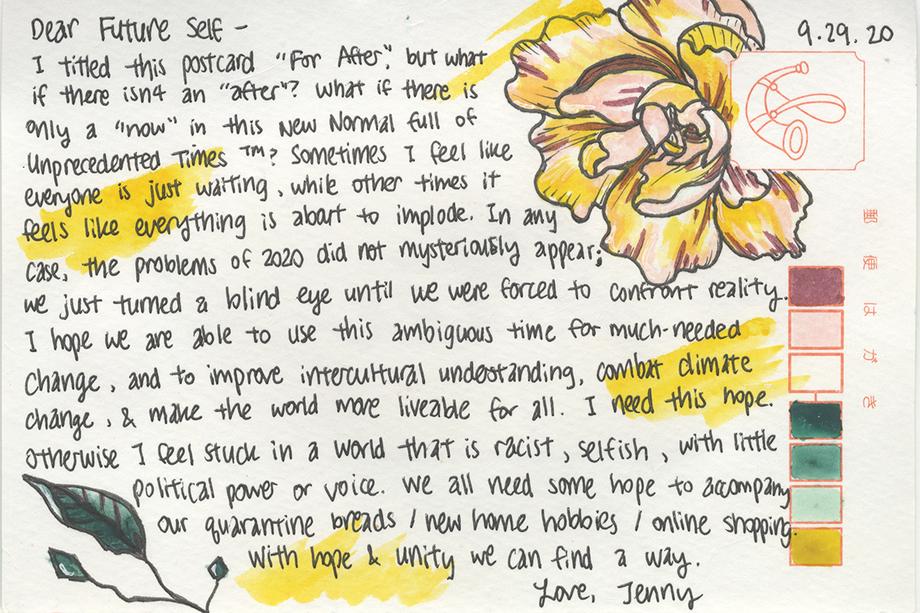 Dear Future Self -
9.29.20
I titled this postcard "For After", but what
if there isn't an "after"? what if there is
only a "now" in this New Normal full of
Unprecedented Times ™? Sometimes I feel like
everyone is just waiting, while other times it
feels like everything is about to implode. In any
case, the problems of 2020 did not mysteriously appear;
we just turned a blind eye until we were forced to confront reality.
I hope we are able to use this ambiguous time for much-needed
change, and to improve intercultural understanding, combat climate
change, & make the world more liveable for all. I need this hope.
otherwise I feel stuck in a world that is racist, selfish, with little
political power or voice. We all need some hope to accompany
our quarantine breads / new home hobbies / online shopping.
With hope & unity we can find a way.
Love, Jenny
郵便はがき